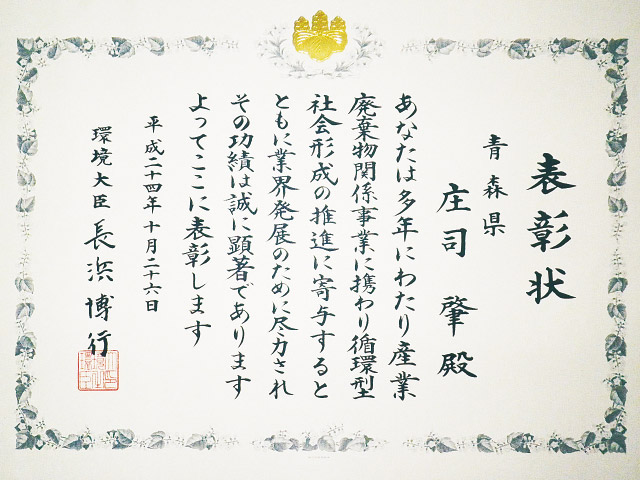 表彰状
青森県
庄司 肇 殿
あなたは多年にわたり産業
廃棄物関係事業に携わり循環型
社会形成の推進に寄与すると
ともに業界発展のために尽力され
その功績は誠に顕著であります
よってここに表彰します
平成二十四年十月二十六日
環境大臣 長浜博行